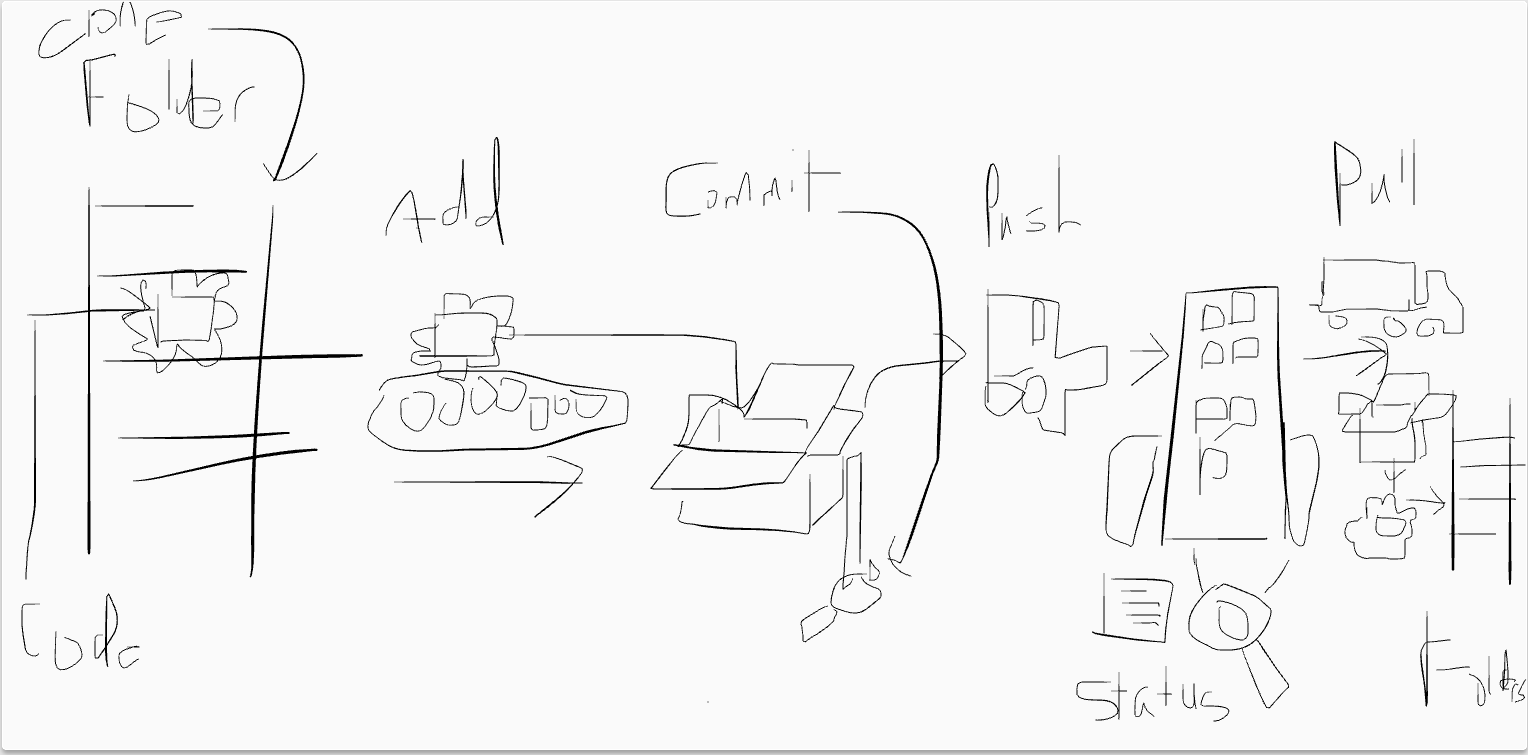 Code
Folder
Add
Commit
Push
Pull
Code
Status
Folders